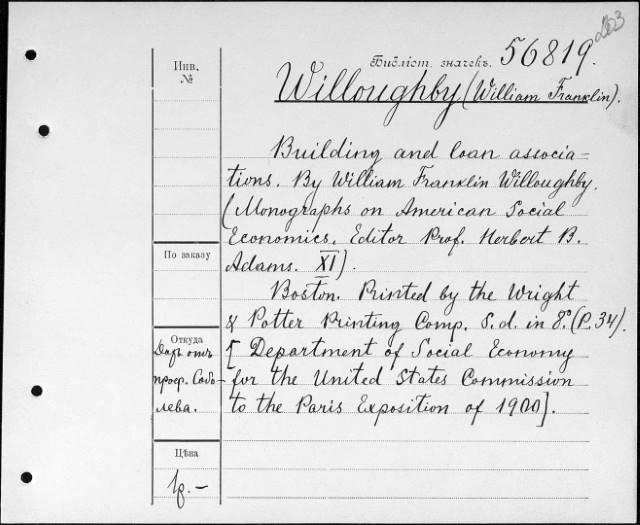 263
Библіот. значекъ. 56819.
Инв.
№
Willoughby (William Franklin).
Building and loan associa-
tions. By William Franklin Willoughby.
(Monographs on American Social
Economics. Editor Prof. Herbert B.
Adams. XI).
Boston. Printed by the Wright
& Potter Printing Comp. S.d. in 8.° (P. 34).
[Department of Social Economy
for the United States Commission
to the Paris Exposition of 1900].
По заказу
Откуда
Даръ отъ
проф. Собо-
лева.
Цѣна
1р. -